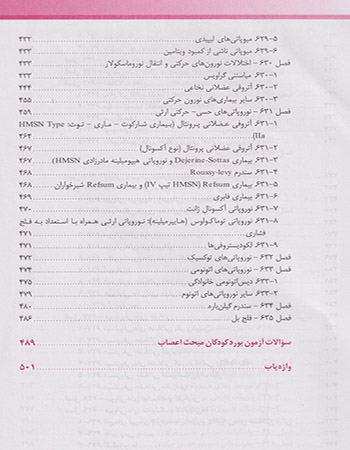 ۶۲۹-۵- میوپاتی‌های لیپیدی ۴۳۲
۶۲۹-۶- میوپاتی ناشی از کمبود ویتامین ۴۳۳
فصل ۶۳۰ - اختلالات نورون‌های حرکتی و انتقال نوروماسکولار ۴۳۳
۶۳۰-۱- میاستنی گراویس ۴۳۳
۶۳۰-۲- آتروفی عضلانی نخاعی ۴۴۴
۶۳۰-۳- سایر بیماری‌های نورون حرکتی ۴۵۵
فصل ۶۳۱ - نوروپاتی‌های حسی- حرکتی ارثی ۴۵۹
۶۳۱-۱- آتروفی عضلانی پرونئال (بیماری شارکوت - ماری - توث: HMSN Type
IIa) ۴۶۴
۶۳۱-۲- آتروفی عضلانی پرونئال (نوع آکسونال) ۴۶۷
۶۳۱-۳- بیماری Dejerine-Sottas و نوروپاتی هیپومیلینه مادرزادی (HMSN) ۴۶۷
۶۳۱-۴- سندرم Roussy-levy ۴۶۸
۶۳۱-۵- بیماری Refsum (HMSN تیپ IV) و بیماری Refsum شیرخواران ۴۶۸
۶۳۱-۶- بیماری فابری ۴۶۹
۶۳۱-۷- نوروپاتی آکسونال ژانت ۴۷۰
۶۳۱-۸- نوروپاتی توماکولوس (هایپرمیلینه)؛ نوروپاتی ارثی همراه با استعداد به فلج
فشاری ۴۷۱
۶۳۱-۹- لکودیستروفی‌ها ۴۷۱
فصل ۶۳۲ - نوروپاتی‌های توکسیک ۴۷۲
فصل ۶۳۳ - نوروپاتی‌های اتونومی ۴۷۴
۶۳۳-۱- دیس‌اتونومی خانوادگی ۴۷۵
۶۳۳-۲- سایر نوروپاتی‌های اتونوم ۴۷۹
فصل ۶۳۴ - سندرم گیلن‌باره ۴۸۰
فصل ۶۳۵ - فلج بل ۴۸۶
سؤالات آزمون بورد کودکان مبحث اعصاب ۴۸۹
واژه‌یاب ۵۰۱